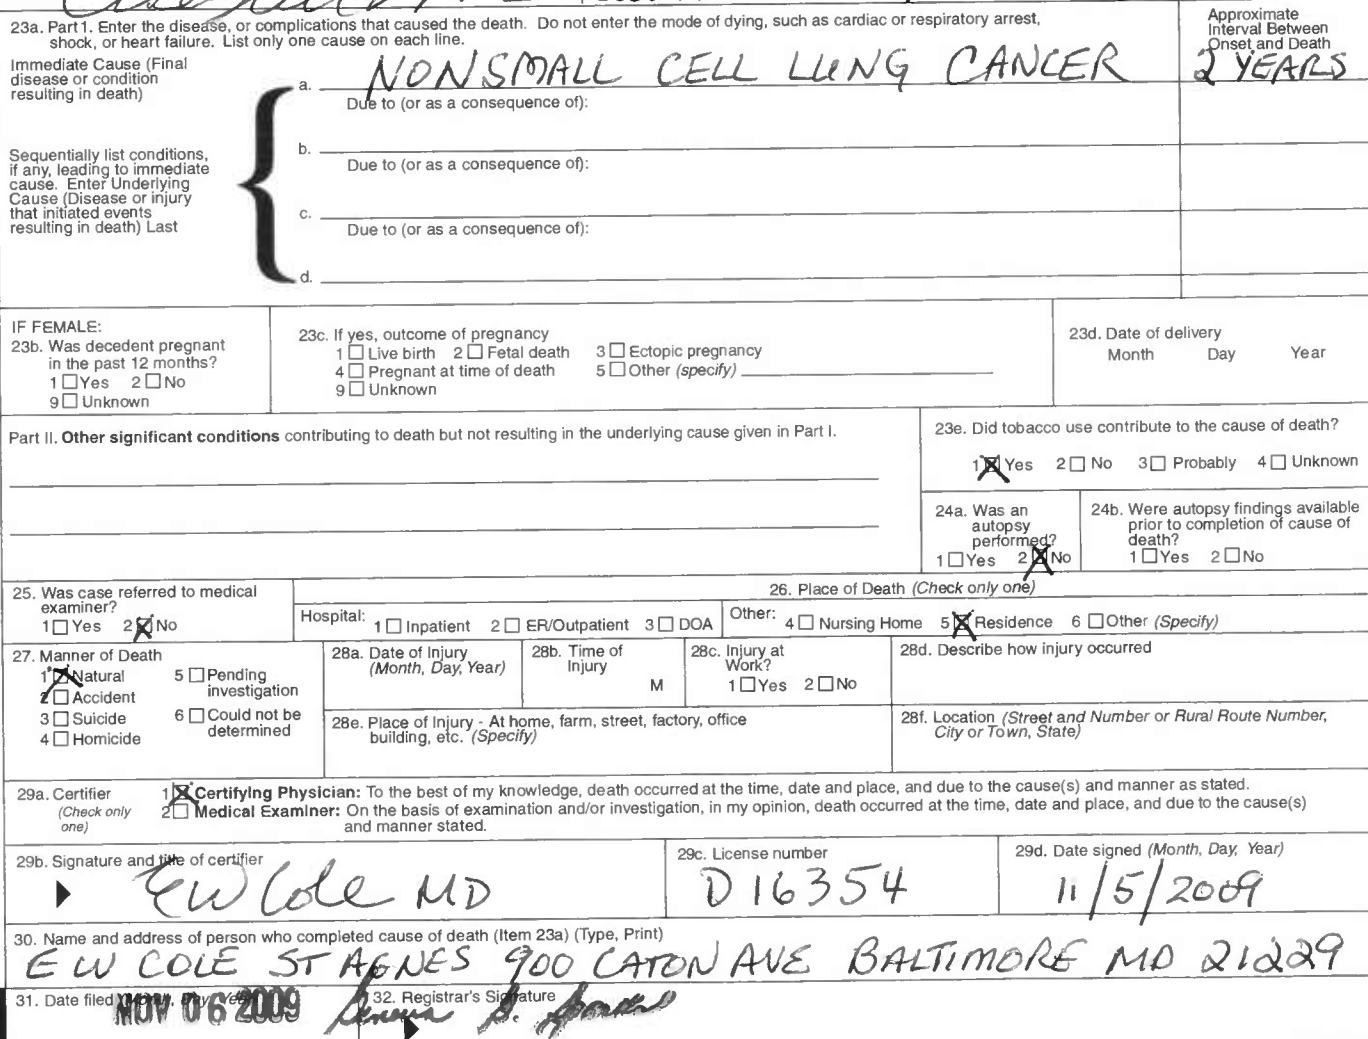 23a. Part 1. Enter the disease, or complications that caused the death. Do not enter the mode of dying, such as cardiac or respiratory arrest,
shock, or heart failure. List only one cause on each line.
Approximate
Interval Between
Onset and Death
Immediate Cause (Final
disease or condition
resulting in death)
a. NONSMALL CELL LUNG CANCER
2 YEARS
Due to (or as a consequence of):
Sequentially list conditions,
if any, leading to immediate
cause. Enter Underlying
Cause (Disease or injury
that initiated events
resulting in death) Last
b.
Due to (or as a consequence of):
c.
Due to (or as a consequence of):
d.
IF FEMALE:
23b. Was decedent pregnant
in the past 12 months?
1 ☐ Yes 2 ☐ No
9 ☐ Unknown
23c. If yes, outcome of pregnancy
1 ☐ Live birth 2 ☐ Fetal death 3 ☐ Ectopic pregnancy
4 ☐ Pregnant at time of death 5 ☐ Other (specify)
9 ☐ Unknown
23d. Date of delivery
Month Day Year
Part II. Other significant conditions contributing to death but not resulting in the underlying cause given in Part I.
23e. Did tobacco use contribute to the cause of death?
1 ☒ Yes 2 ☐ No 3 ☐ Probably 4 ☐ Unknown
24a. Was an
autopsy
performed?
1 ☐ Yes 2 ☒ No
24b. Were autopsy findings available
prior to completion of cause of
death?
1 ☐ Yes 2 ☐ No
25. Was case referred to medical
examiner?
1 ☐ Yes 2 ☒ No
26. Place of Death (Check only one)
Hospital: 1 ☐ Inpatient 2 ☐ ER/Outpatient 3 ☐ DOA
Other: 4 ☐ Nursing Home 5 ☒ Residence 6 ☐ Other (Specify)
27. Manner of Death
1 ☒ Natural
2 ☐ Accident
3 ☐ Suicide
4 ☐ Homicide
5 ☐ Pending
investigation
6 ☐ Could not be
determined
28a. Date of Injury
(Month, Day, Year)
28b. Time of
Injury
M
28c. Injury at
Work?
1 ☐ Yes 2 ☐ No
28d. Describe how injury occurred
28e. Place of Injury - At home, farm, street, factory, office
building, etc. (Specify)
28f. Location (Street and Number or Rural Route Number,
City or Town, State)
29a. Certifier
(Check only
one)
1 ☒ Certifying Physician: To the best of my knowledge, death occurred at the time, date and place, and due to the cause(s) and manner as stated.
2 ☐ Medical Examiner: On the basis of examination and/or investigation, in my opinion, death occurred at the time, date and place, and due to the cause(s)
and manner stated.
29b. Signature and title of certifier
EW Cole MD
29c. License number
D 16354
29d. Date signed (Month, Day, Year)
11/5/2009
30. Name and address of person who completed cause of death (Item 23a) (Type, Print)
E W COLE ST AGNES 900 CATON AVE BALTIMORE MD 21229
31. Date filed (Month, Day, Year)
NOV 06 2009
32. Registrar's Signature